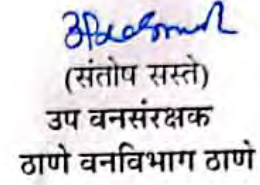 (संतोष सस्ते)
उप वनसंरक्षक
ठाणे वनविभाग ठाणे